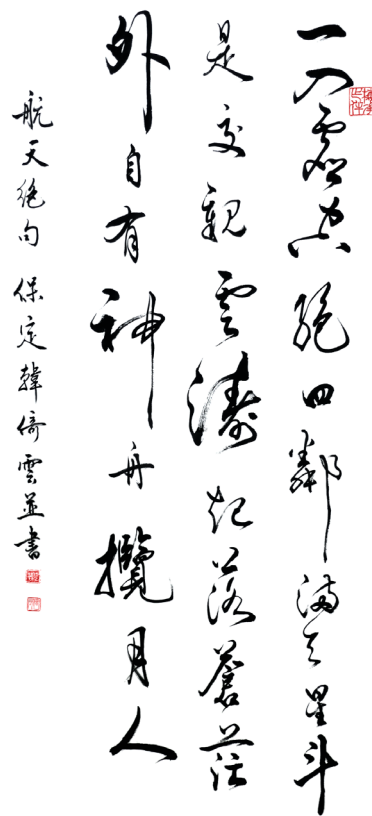 一入虛空絕四鄰滿天星斗
是交親雲濤起落蒼茫
外自有神舟攬月人
航天絕句 保定韓倚雲並書